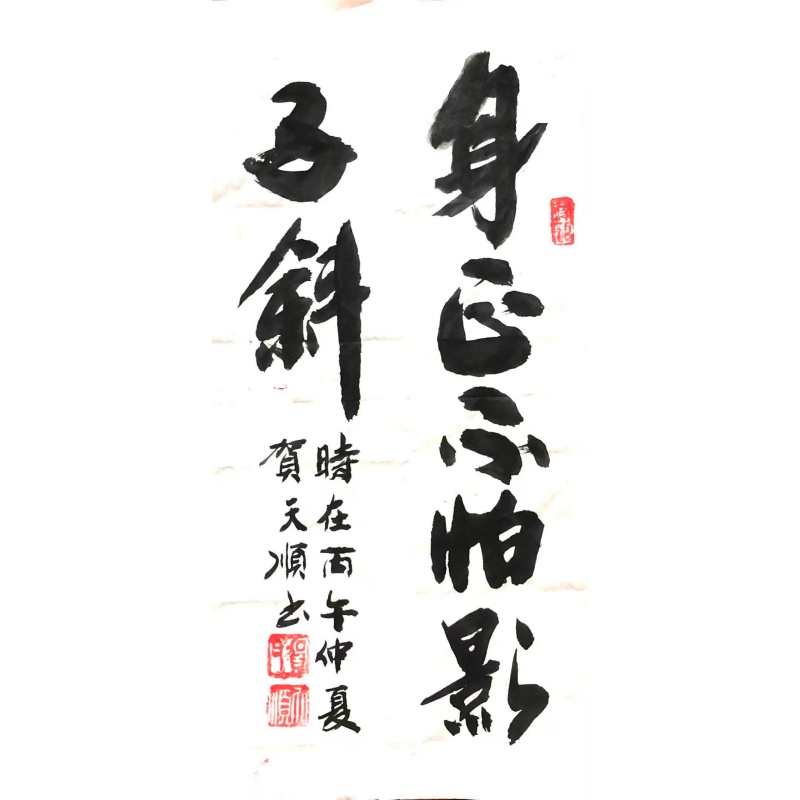 身正不怕影
子斜
時在丙午仲夏
賀天順书